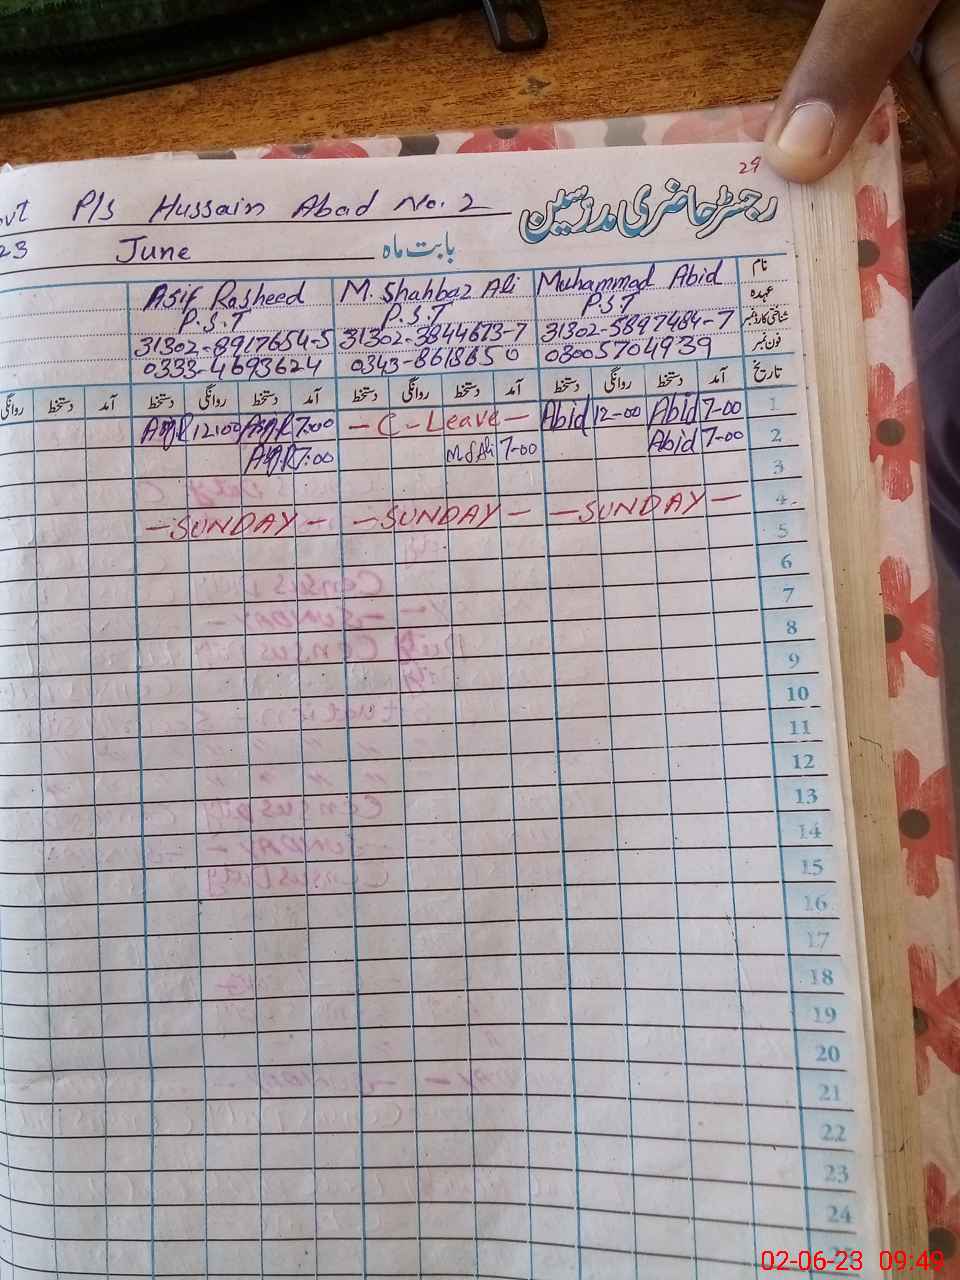 29
رجسٹر حاضری مدرسین
P/s Hussain Abad No. 2
23 June بابت ماہ
نام Muhammad Abid M. Shahbaz Ali Asif Rasheed
عہدہ P.S.T P.S.T P.S.T
شناختی کارڈ نمبر 31302-5897464-7 31302-3844673-7 31302-8917654-5
فون نمبر 03005704939 0343-8618650 0333-4693624
تاریخ آمد دستخط روانگی دستخط آمد دستخط روانگی دستخط آمد دستخط روانگی دستخط آمد دستخط روانگی
1 7-00 Abid 12-00 Abid - C - Leave - 7:00 12:00
2 7-00 Abid 7-00 M S Ali 7:00
3
4 - SUNDAY - - SUNDAY - - SUNDAY -
5
6
7
8
9
10
11
12
13
14
15
16
17
18
19
20
21
22
23
24
02-06-23 09:49